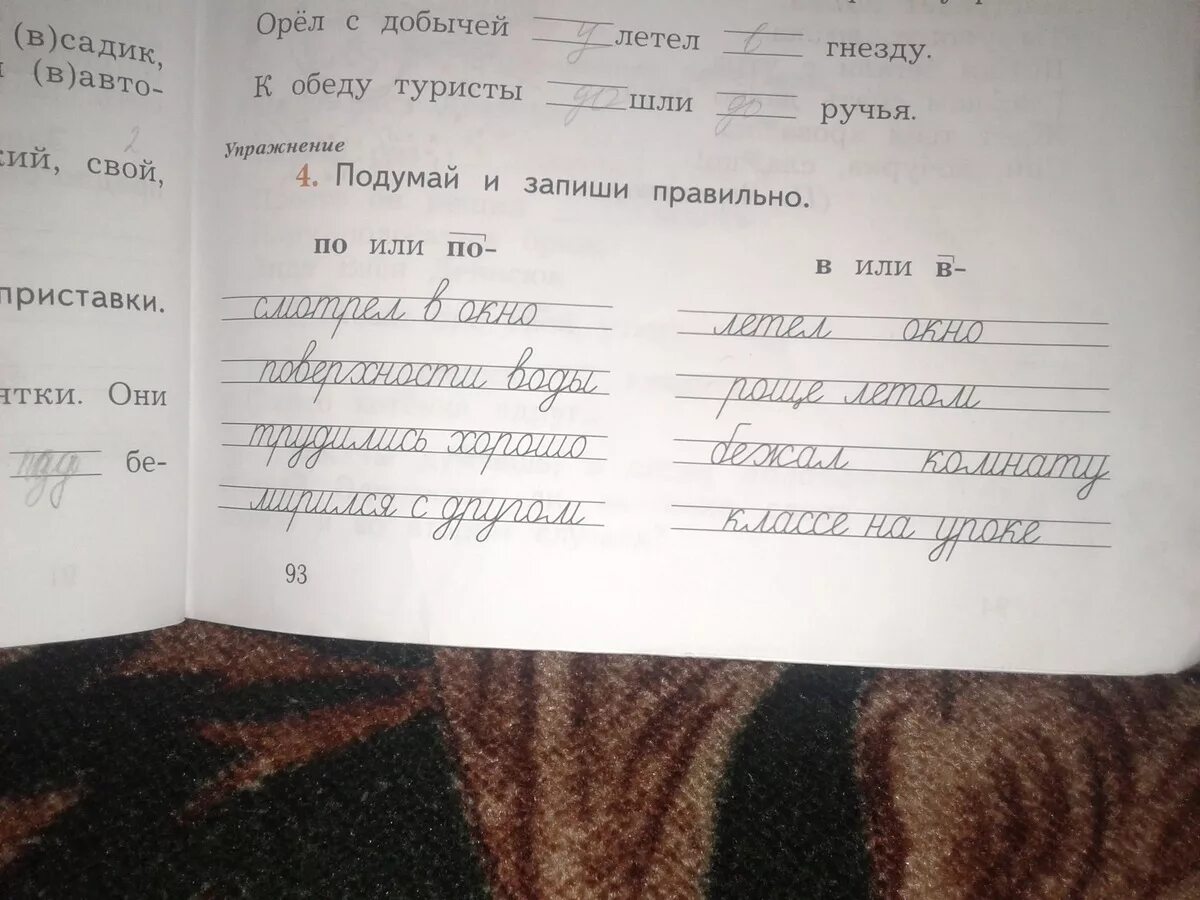 (в)садик,
(в)авто-
2
кий, свой,
приставки.
Они
бе-
Орёл с добычей у летел в гнезду.
К обеду туристы до шли до ручья.
Упражнение
4. Подумай и запиши правильно.
по или по-
смотрел в окно
поверхности воды
трудились хорошо
мирился с другом
в или в-
летел окно
роще летом
бежал комнату
классе на уроке
93